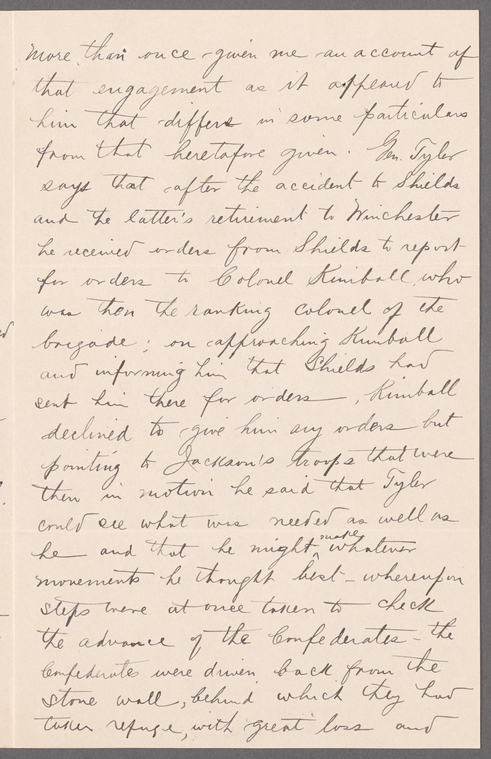 more than once given me an account of
that engagement as it appeared to
him that differs in some particulars
from that heretofore given. Gen. Tyler
says that after the accident to Shields
and the latter's retirement to Winchester
he received orders from Shields to report
for orders to Colonel Kimball who
was then the ranking colonel of the
brigade; on approaching Kimball
and informing him that Shields had
sent him there for orders, Kimball
declined to give him any orders but
pointing to Jackson's troops that were
then in motion he said that Tyler
could see what was needed as well as
he and that he might make whatever
movements he thought best - whereupon
steps were at once taken to check
the advance of the Confederates - the
Confederates were driven back from the
stone wall, behind which they had
taken refuge, with great loss and